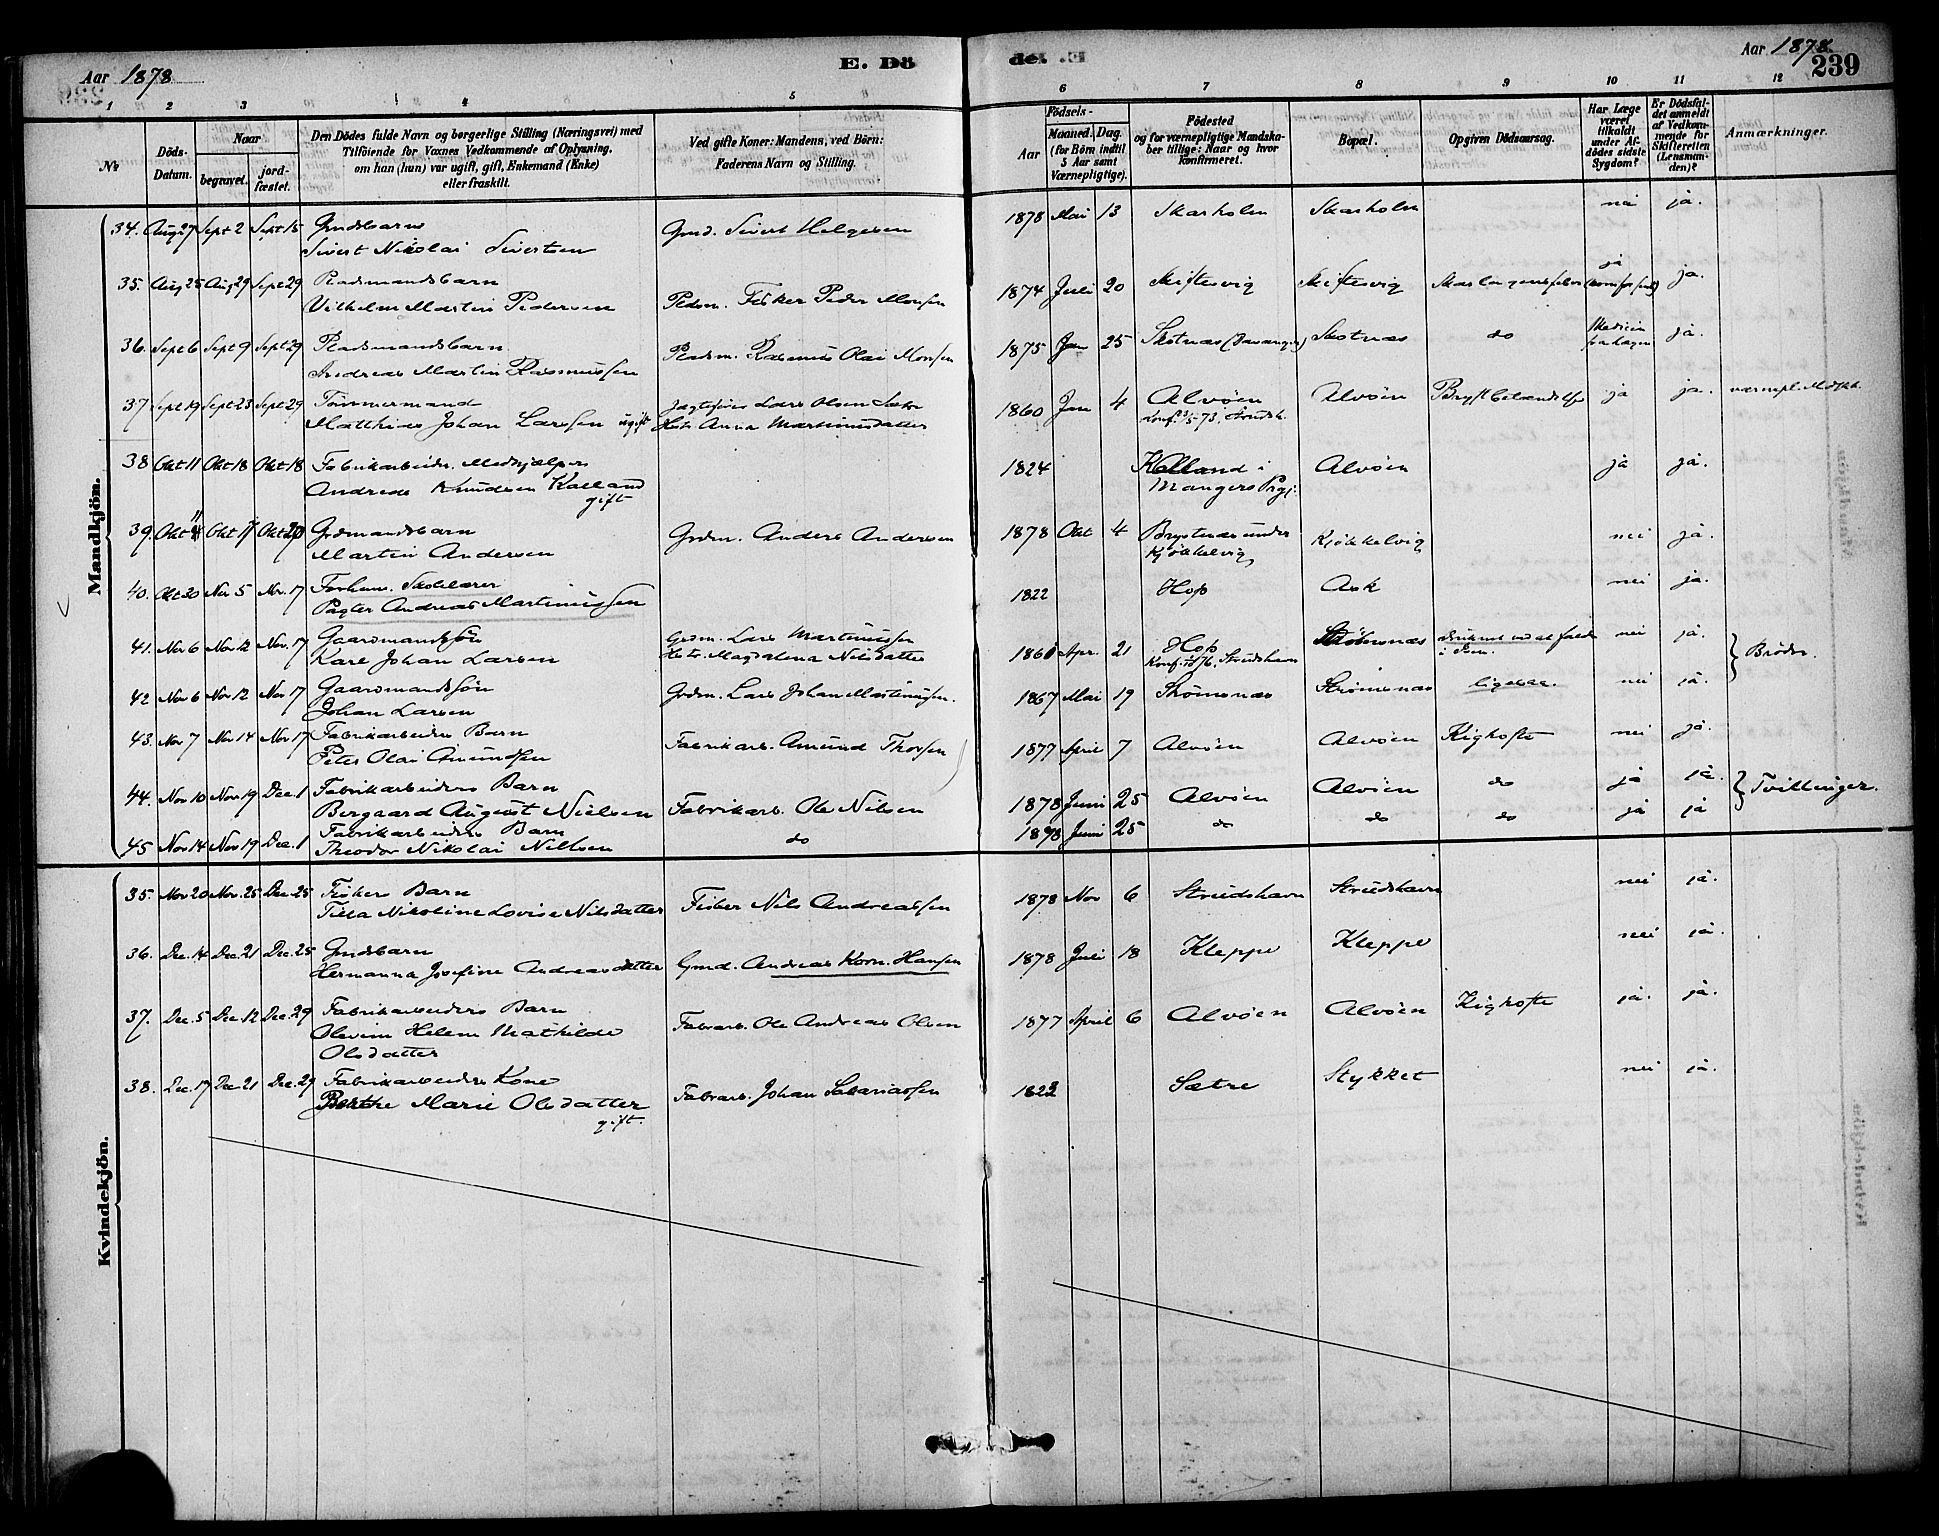 Aar 1878
E. Dö
de. .E
Aar 1878.
239
1 2 3 4 5 6 7 8 9 10 11 12
№
Döds-Datum.
Naar
begravet.
jord-fæstet.
Den Dödes fulde Navn og borgerlige Stilling (Næringsvei) med
Tilföiende for Voxnes Vedkommende af Oplysning,
om han (hun) var ugift, gift, Enkemand (Enke)
eller fraskilt.
Ved gifte Koner: Mandens, ved Börn:
Faderens Navn og Stilling.
Födsels-
Aar
Maaned. Dag.
(for Börn indtil
5 Aar samt
Værnepligtige).
Födested
og for værnepligtige Mandska-
ber tillige: Naar og hvor
konfirmeret.
Bopæl.
Opgiven Dödsaarsag.
Har Læge
været
tilkaldt
under Af-
dödes sidste
Sygdom?
Er Dödsfal-
det anmeldt
af Vedkom-
mende for
Skifteretten
(Lensman-
den)?
Anmærkninger.
Mandkjön.
34. Aug 27 Sept 2 Sept 15 Gmdsbarn Gmd. Sivert Helgesen 1878 Mai 13 Skarholm Skarholm nei ja.
Sivert Nikolai Sivertsen
35. Aug 25 Aug 29 Sept 29 Pladsmandsbarn 1874 Juli 20 Skiftesvig Skiftesvig ja ja.
Vilhelm Martin Pedersen Pladsm. Fisker Peder Monsen
36. Sept 6 Sept 9 Sept 29 Pladsmandsbarn Pladsm. Rasmus Olai Monsen 1875 Jan 25 Skotnæs Skotnæs do Medicin ja.
Andreas Martin Rasmussen
37 Sept 19 Sept 23 Sept 29 Tömmermand Jagtefører Lars Olsen 1860 Jan 4 Alvöen Alvöen Brystbetændelse ja ja.
Matthias Johan Larssen ugift Hstr. Anna Martinusdatter
38 Okt 11 Okt 18 Okt 18 Fabrikarbeider. Medhjælper 1824 Kalland i Alvöen ja ja.
Andreas Knudsen Kalland Mangers Prgj.
gift
39. Okt 11 Okt 20 Grdmandsbarn Grdm. Anders Andersen 1878 Okt 4 Brystenæs under Kjökkelvig nei ja.
Martin Andersen Kjökkelvig
40. Okt 30 Nov 5 Nov. 17 Forhenv. Skolelærer 1822 Hop Ask nei ja.
Andreas Martinussen
41. Nov 6 Nov 12 Nov. 17 Gaardmandssön Grdm. Lars Martinussen Apr. 21 Hop Strömsnæs nei ja. Brödre.
Karl Johan Larsen Hstr. Magdalena Nilsdatter Konf. 1876, Strudshavn
42 Nov 6 Nov 12 Nov 17 Gaardmandssön Grdm. Lars Johan Martinussen. 1867 Mai 19 Strömsnæs Strömsnæs ligesaa. nei ja.
Johan Larsen
43. Nov 7 Nov 14 Nov 17 Fabrikarbeiders Barn Fabrikarb. Amund Thorsen 1877 April 7 Alvöen Alvöen Kighoste nei ja.
Peter Olai Amundsen
44. Nov 10 Nov 19 Dec. 1 Fabrikarbeiders Barn 1878 Juni 25 Alvöen Alvöen do ja ja. Tvillinger.
Bergaard August Nielsen Fabrikarb. Ole Nilsen
45 Nov 14 Nov 19 Dec. 1 Fabrikarbeiders Barn do 1878 Juni 25 do do do ja ja
Theodor Nikolai Nielsen
Kvindekjön.
35. Nov 20 Nov. 25 Dec. 25 Fisker Barn Fisker Nils Andreassen 1878 Nov 6 Strudshavn Strudshavn nei ja.
Nikoline Lovise Nilsdatter
36. Dec. 14 Dec. 21 Dec. 25 Gmdsbarn 1878 Juli 18 Kleppe Kleppe nei ja.
Hermanna Josefine Andreasdatter Gmd. Andreas Korn. Hansen
37. Dec. 5 Dec. 12 Dec. 29 Fabrikarbeiders Barn Fabrarb. Ole Andreas Olsen 1877 April 6 Alvöen Alvöen Kighoste ja. ja.
Olevine Helene Mathilde
Olsdatter
38. Dec. 17 Dec 21 Dec. 29 Fabrikarbeiders Kone Fabrarb. Johan Sakariassen Sætre Stykket nei ja.
Marie Olsdatter
gift.